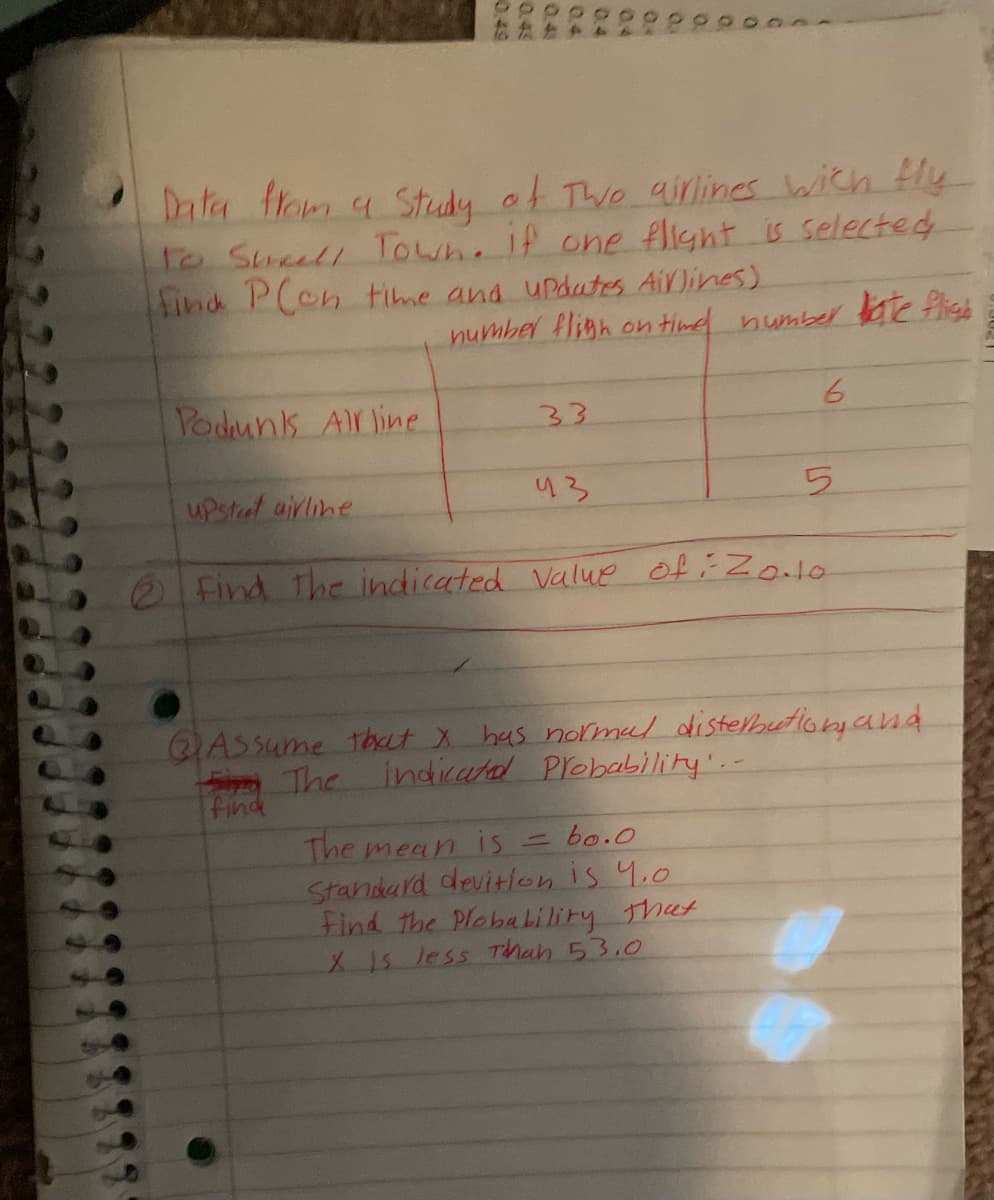 Data from a Study of Two airlines wich fly
to Small Town. if one flight is selected
find P(on time and updates Airlines)
number fligh on timed number late fligh
Podunks Air line 33 6
upstat airline 43 5
② Find The indicated Value of : Z0.10
③ Assume that x has normal disterbution, and
find The indicated Probability:-
The mean is = 60.0
Standard devition is 4.0
find the Probability that
x is less Than 53.0